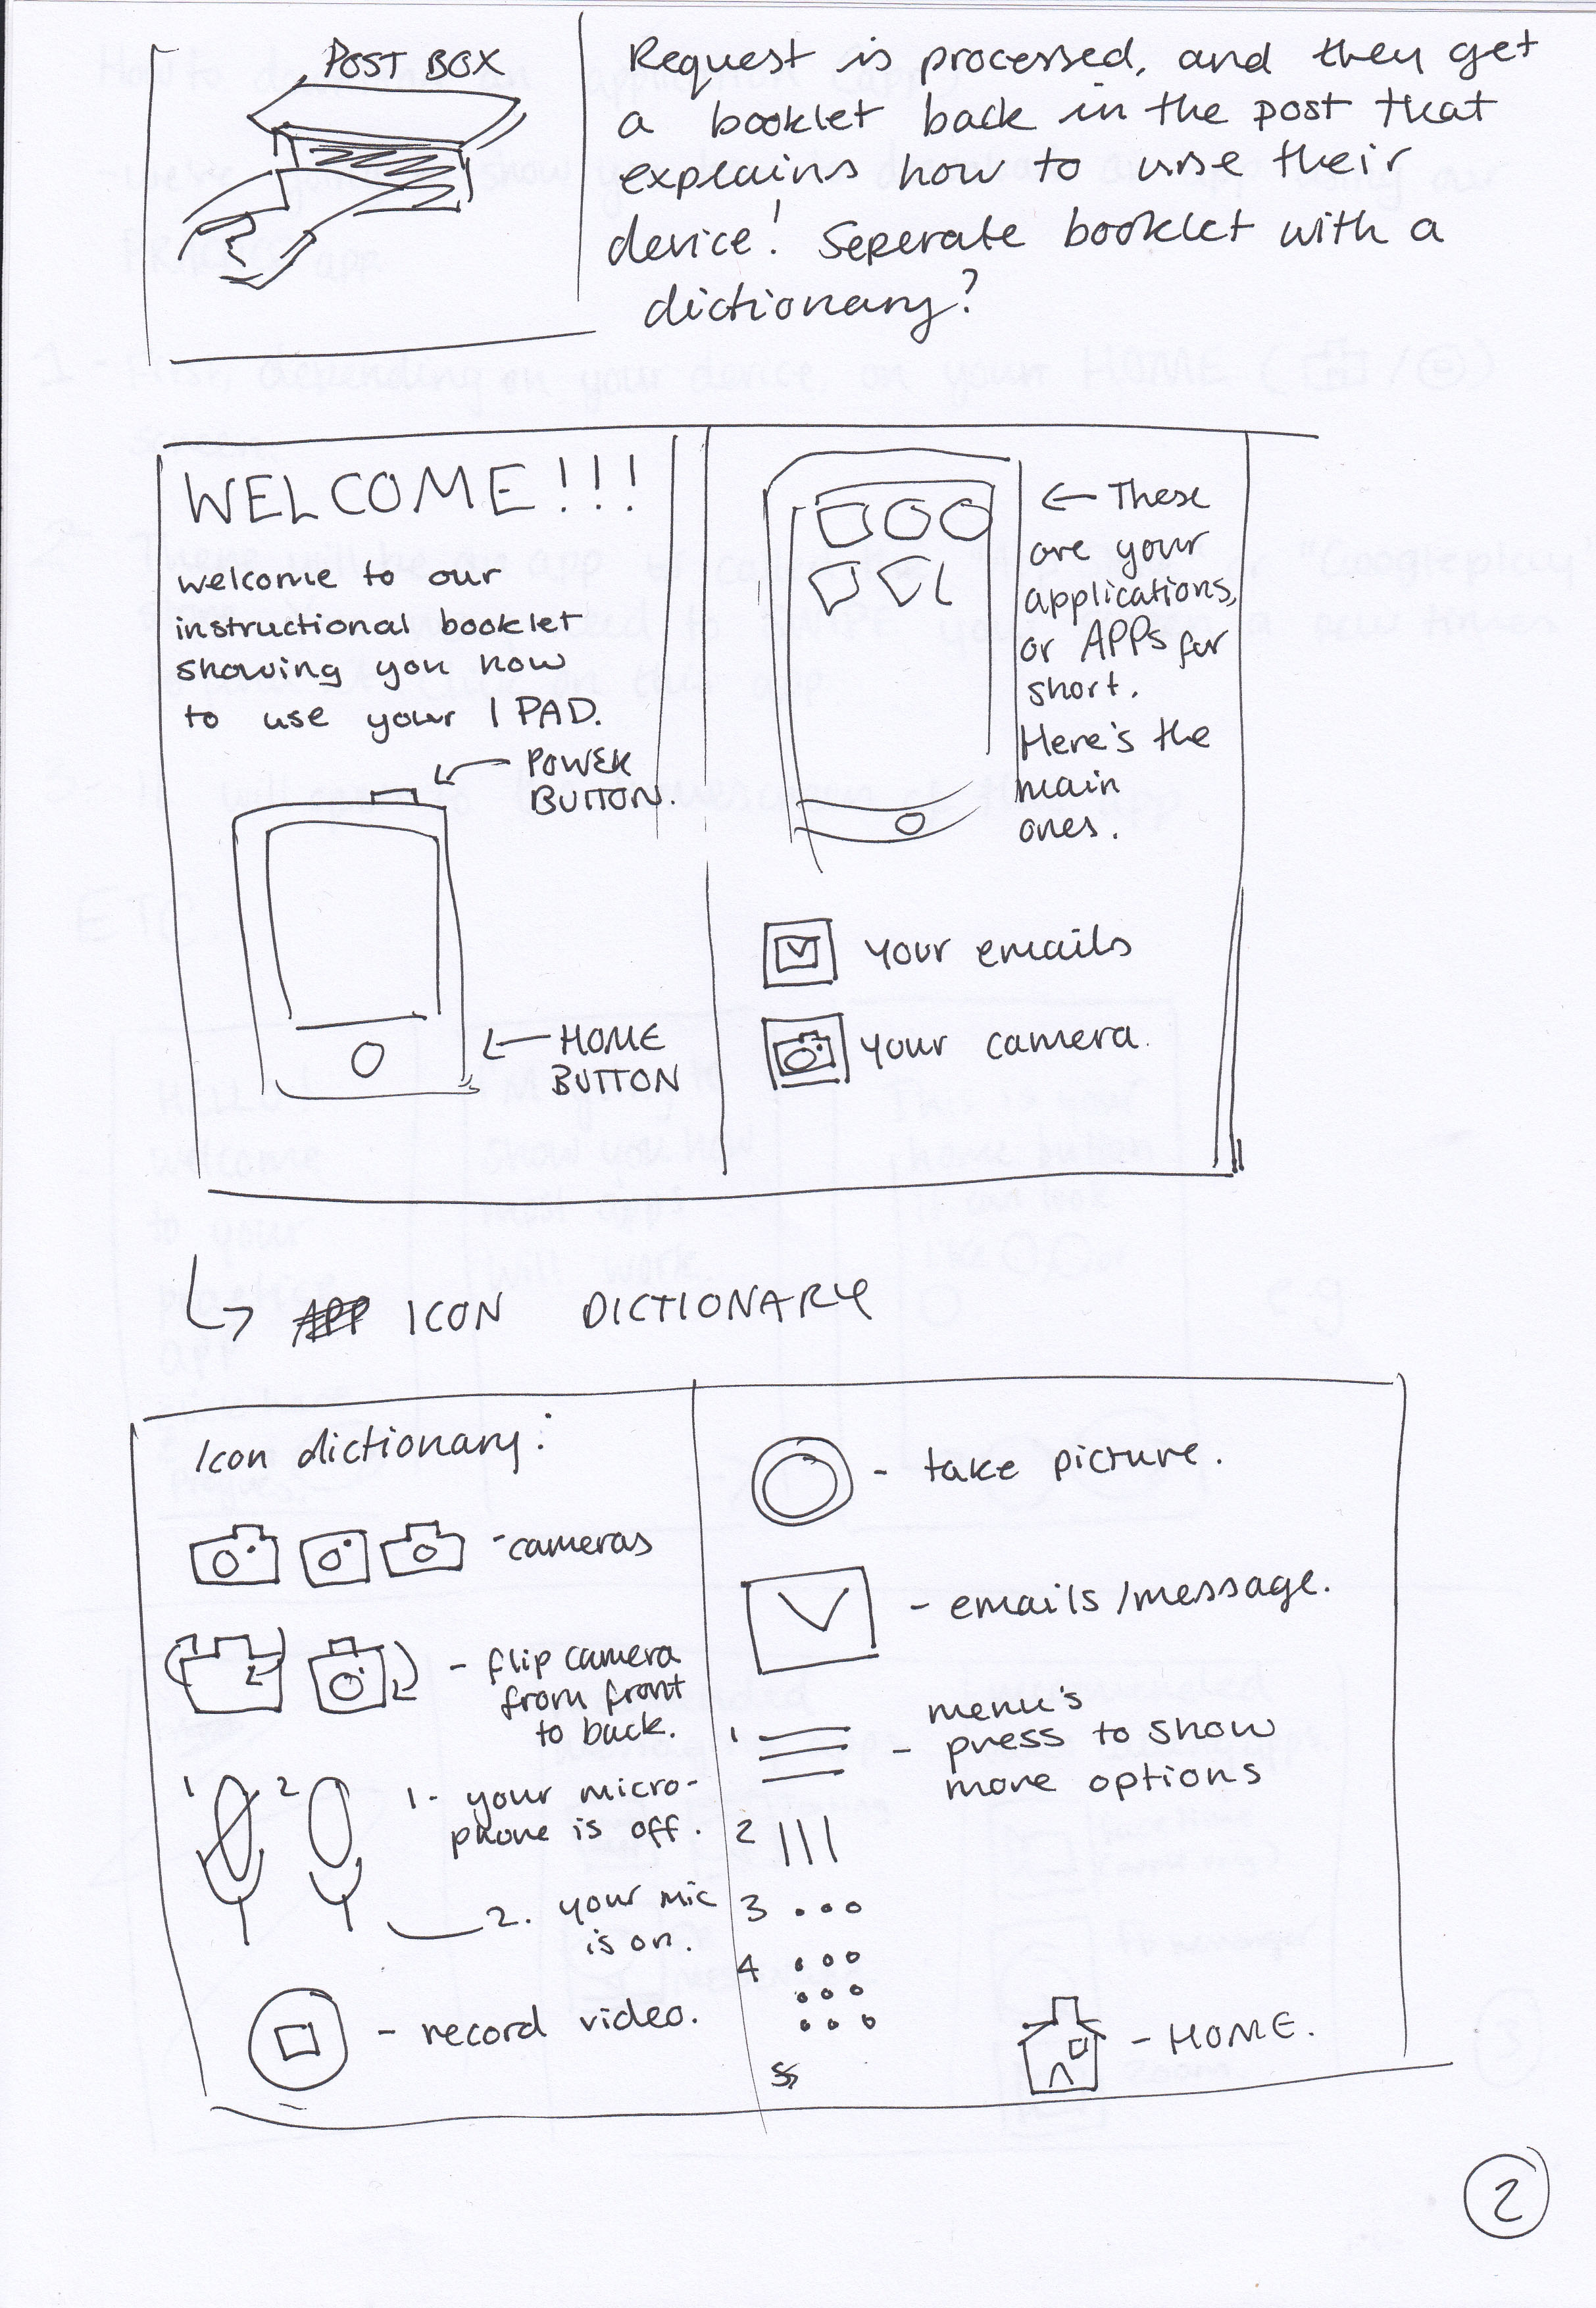 POST BOX
Request is processed, and they get
a booklet back in the post that
explains how to use their
device! Seperate booklet with a
dictionary?
WELCOME!!!
welcome to our
instructional booklet
showing you how
to use your IPAD.
POWER
BUTTON.
HOME
BUTTON
← These
are your
applications,
or APPs for
short.
Here's the
main
ones.
your emails
your camera.
APP ICON DICTIONARY
Icon dictionary:
- cameras
- flip camera
from front
to back.
1 2
1- your micro-
phone is off.
2. your mic
is on.
- record video.
- take picture.
- emails/message.
1
- menu's
press to show
more options
2
3
4
5
- HOME.
2